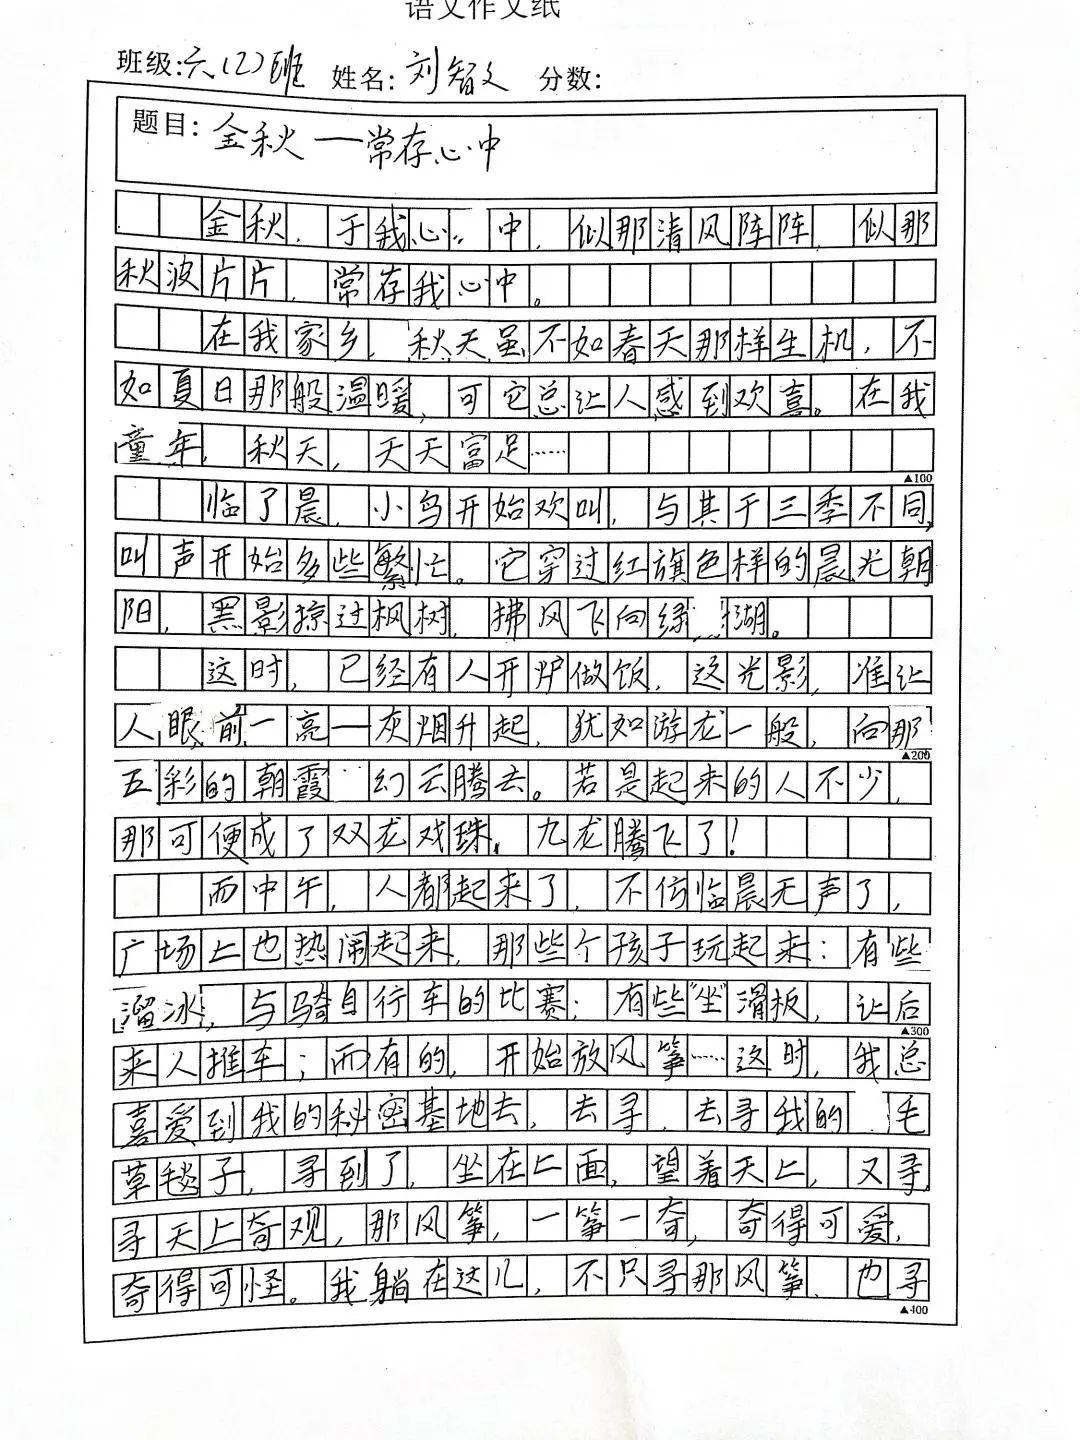 语文作文纸
班级:六(2)班 姓名:刘智文 分数:
题目:金秋——常存心中
金秋,于我心中,似那清风阵阵,似那
秋波片片,常存我心中。
在我家乡,秋天虽不如春天那样生机,不
如夏日那般温暖,可它总让人感到欢喜。在我
童年,秋天,天天富足……
▲100
临了晨,小鸟开始欢叫,与其于三季不同,
叫声开始多些繁忙。它穿过红旗色样的晨光朝
阳,黑影掠过枫树,拂风飞向绿湖。
这时,已经有人开炉做饭,这光影,准让
人眼前一亮——灰烟升起,犹如游龙一般,向那
▲200
五彩的朝霞 幻云腾去。若是起来的人不少,
那可便成了双龙戏珠,九龙腾飞了!
而中午,人都起来了,不似临晨无声了,
广场上也热闹起来,那些个孩子玩起来:有些
溜冰,与骑自行车的比赛;有些"坐"滑板,让后
▲300
来人推车;而有的,开始放风筝……这时,我总
喜爱到我的秘密基地去,去寻,去寻我的 毛
草毯子,寻到了,坐在上面,望着天上,又寻
寻天上奇观,那风筝,一筝一奇,奇得可爱,
奇得可怪。我躺在这儿,不只寻那风筝,也寻
▲400